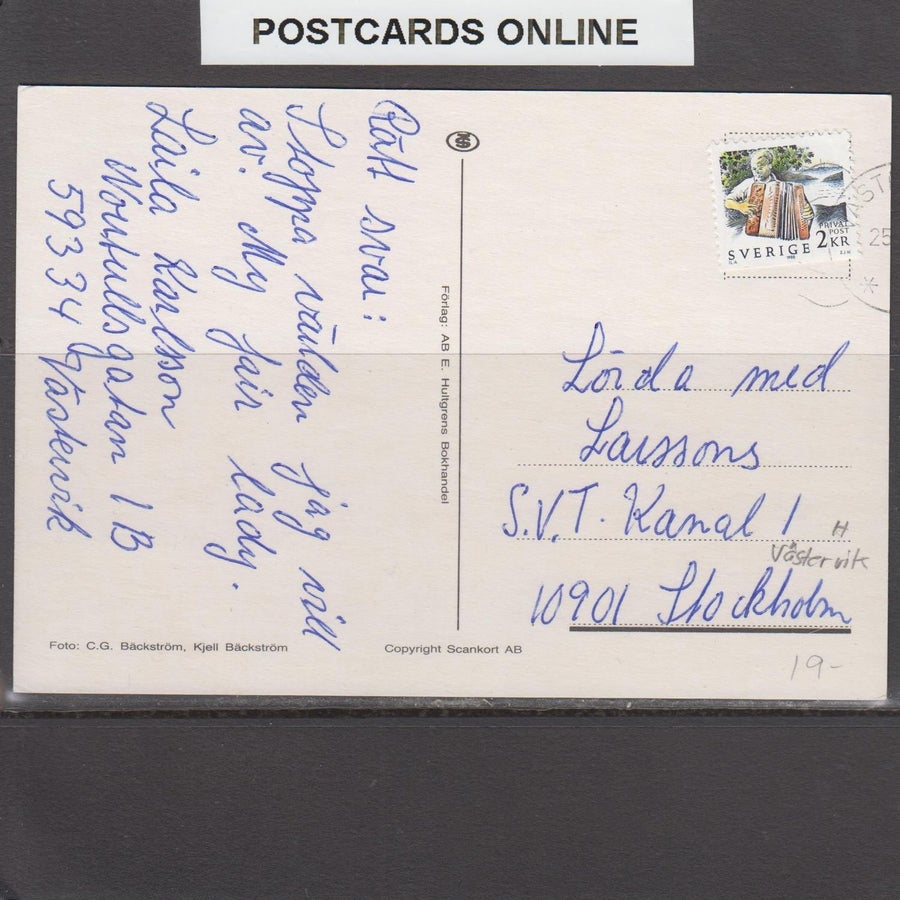 POSTCARDS ONLINE
Rätt svar:
Stoppa världen jag vill
av. My fair lady.
Laila Karlsson
593 34 Västervik
Förlag: AB E. Hultgrens Bokhandel
PRIVAT
POST
SVERIGE 2KR
25
Lörda med
Larssons
S.V.T. Kanal 1
H
Västervik
10901 Stockholm
Foto: C.G. Bäckström, Kjell Bäckström
Copyright Scankort AB
19-